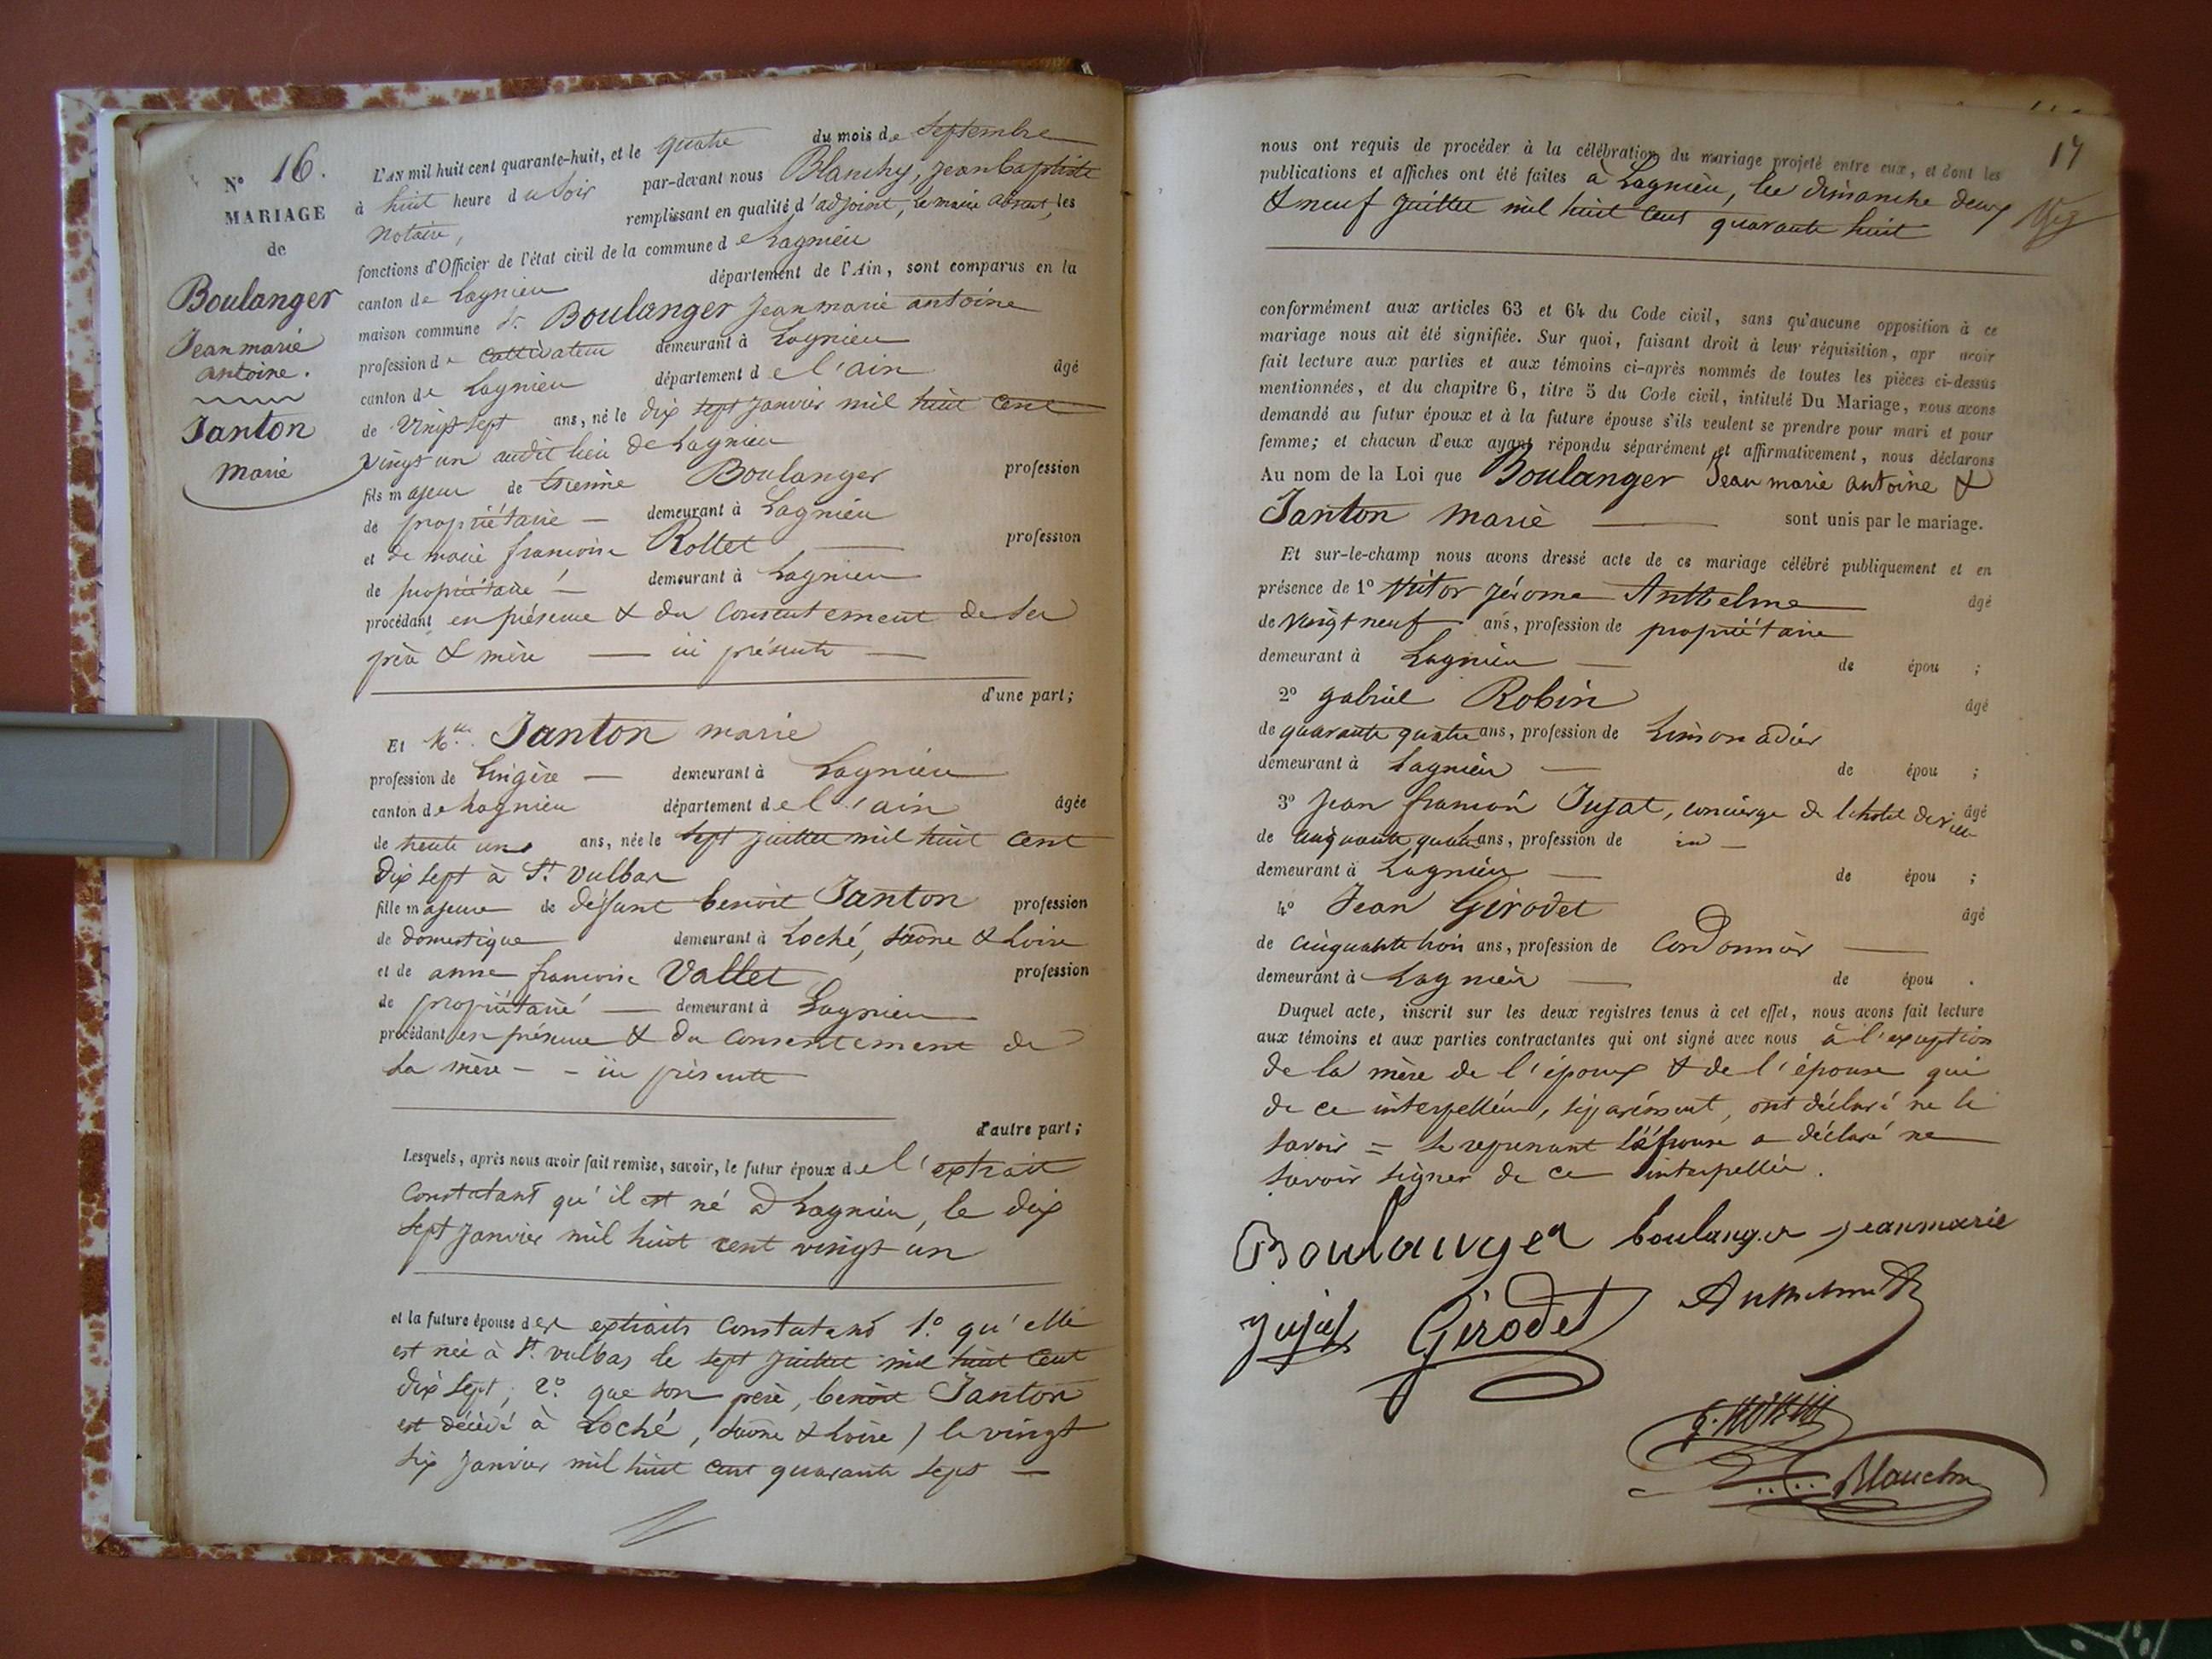 N° 16.
MARIAGE
de
Boulanger
Jean marie
antoine.
Janton
marie
L'AN mil huit cent quarante-huit, et le quatre du mois de septembre
à huit heure du soir par-devant nous Blanchy, jean baptiste
notaire, remplissant en qualité d'adjoint, le maire absent, les
fonctions d'Officier de l'état civil de la commune de Lagnieu
canton de Lagnieu département de l'Ain, sont comparus en la
maison commune Sr. Boulanger jean marie antoine
profession de cultivateur demeurant à Lagnieu
canton de Lagnieu département de l'ain âgé
de vingt sept ans, né le dix sept janvier mil huit cent
vingt un audit lieu de Lagnieu
fils majeur de Etienne Boulanger profession
de propriétaire — demeurant à Lagnieu
et de marie francoise Rollet — profession
de propriétaire — demeurant à Lagnieu
procédant en présence & du consentement de ses
père & mère — ici présents —
d'une part;
Et Mlle. Janton marie
profession de Lingère — demeurant à Lagnieu
canton de Lagnieu département de l'ain âgée
de trente un ans, née le sept juillet mil huit cent
dix sept à St. Vulbas
fille majeure de défunt benoit Janton profession
de domestique demeurant à Loché, saône & Loire
et de anne francoise Vallet profession
de propriétaire — demeurant à Lagnieu
procédant en présence & du consentement de
sa mère - - ici présente
d'autre part;
Lesquels, après nous avoir fait remise, savoir, le futur époux de l'extrait
constatant qu'il est né à Lagnieu, le dix
sept janvier mil huit cent vingt un
et la future épouse des extraits constatant 1.° qu'elle
est née à St. vulbas le sept juillet mil huit cent
dix sept; 2.° que son père, benoit Janton
est décédé à Loché, saône & Loire) le vingt
six janvier mil huit cent quarante sept —
17
nous ont requis de procéder à la célébration du mariage projeté entre eux, et dont les
publications et affiches ont été faites à Lagnieu, les dimanche deux
& neuf juillet mil huit cent quarante huit
conformément aux articles 63 et 64 du Code civil, sans qu'aucune opposition à ce
mariage nous ait été signifiée. Sur quoi, faisant droit à leur réquisition, apr avoir
fait lecture aux parties et aux témoins ci-après nommés de toutes les pièces ci-dessus
mentionnées, et du chapitre 6, titre 5 du Code civil, intitulé Du Mariage, nous avons
demandé au futur époux et à la future épouse s'ils veulent se prendre pour mari et pour
femme; et chacun d'eux ayant répondu séparément et affirmativement, nous déclarons
Au nom de la Loi que Boulanger Jean marie antoine &
Janton marie — sont unis par le mariage.
Et sur-le-champ nous avons dressé acte de ce mariage célébré publiquement et en
présence de 1° Victor jérome Anthelme âgé
de vingt neuf ans, profession de propriétaire
demeurant à Lagnieu — de épou ;
2° gabriel Robin âgé
de quarante quatre ans, profession de Limonadier
demeurant à Lagnieu — de épou ;
3° jean francois Jujat, concierge de l'hotel de ville âgé
de cinquante quatre ans, profession de id —
demeurant à Lagnieu — de épou ;
4° Jean Girodet âgé
de cinquante trois ans, profession de Cordonnier —
demeurant à Lagnieu — de épou .
Duquel acte, inscrit sur les deux registres tenus à cet effet, nous avons fait lecture
aux témoins et aux parties contractantes qui ont signé avec nous à l'exception
de la mère de l'époux & de l'épouse qui
de ce interpellées, séparément, ont déclaré ne le
savoir = se reprenant l'épouse a déclaré ne
savoir signer de ce interpellée.
Boulanger boulanger jeanmarie
Jujat Girodet Anthelme
g. Robin
Blanchy